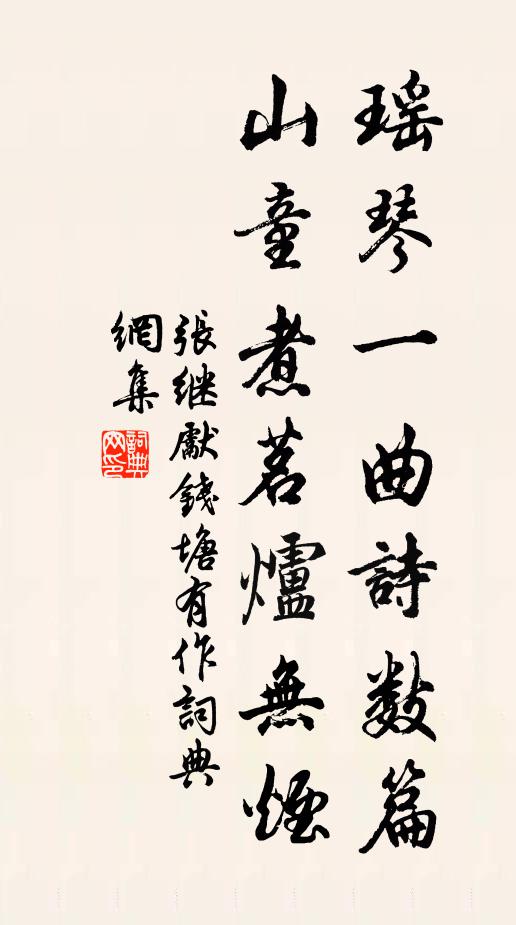 瑶琴一曲詩数篇
山童煮茗爐無煙
張继獻錢塘有作詞典
網集
詞典网印